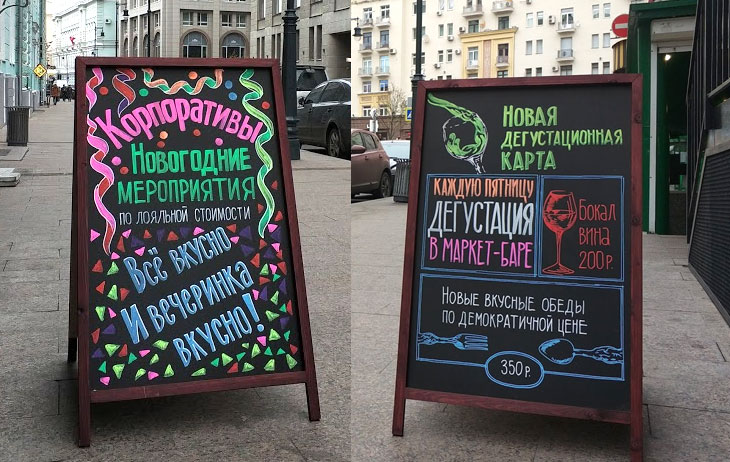 Корпоративы
Новогодние
мероприятия
по лояльной стоимости
Всё вкусно
И вечеринка
вкусно!
Новая
дегустационная
карта
Каждую пятницу
дегустация
в маркет-баре
Бокал
вина
200р.
Новые вкусные обеды
по демократичной цене
350р.